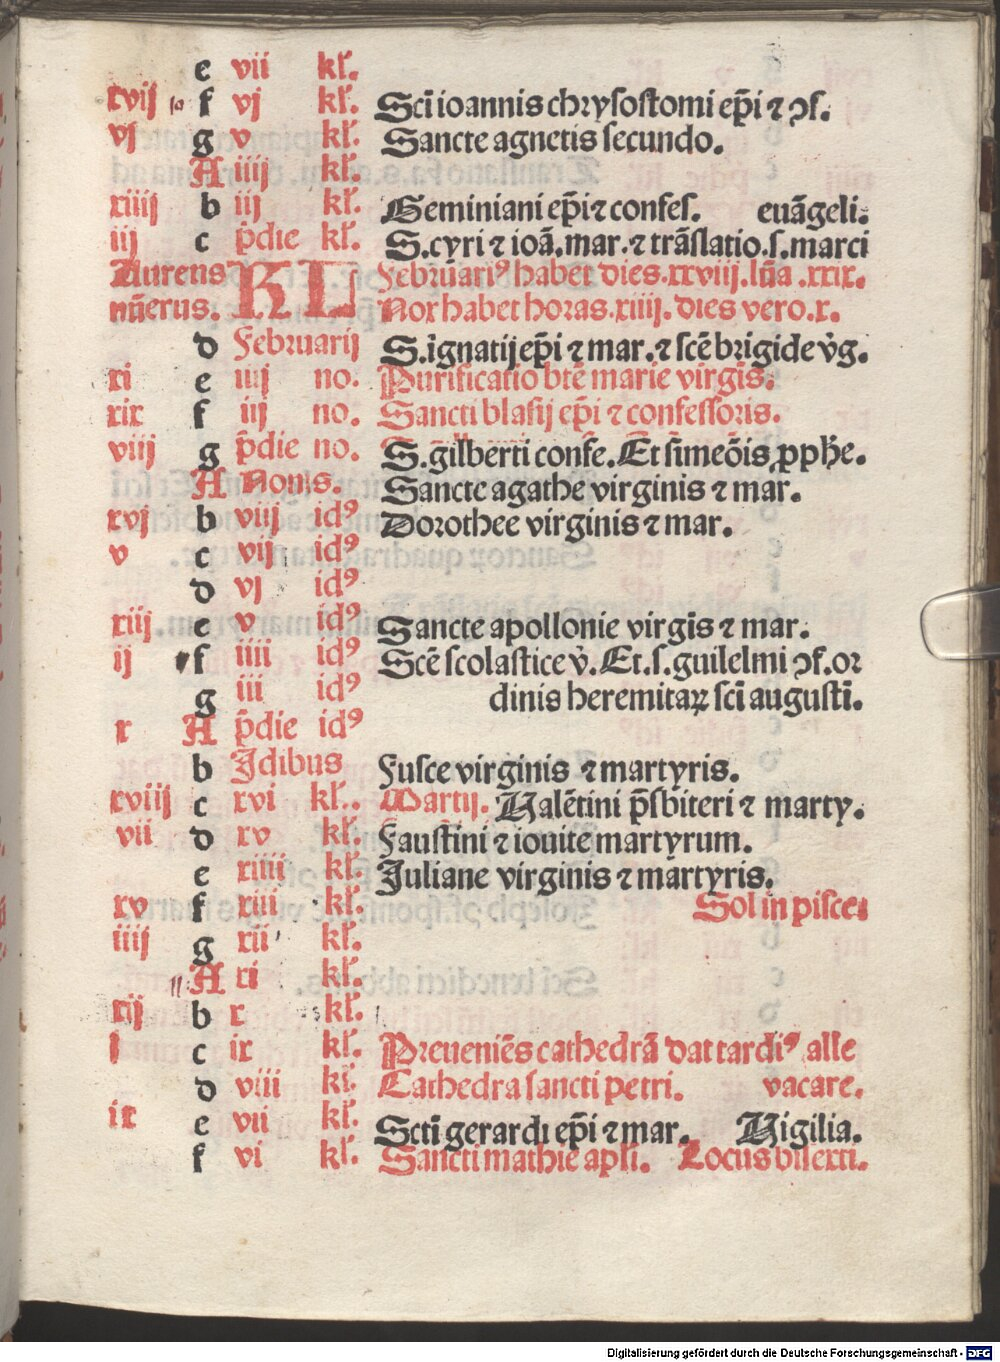 e vii kl̓.
xvij f vj kl̓. Sci̅ ioannis chrysostomi ep̅i ⁊ ɔf.
vj g v kl̓. Sancte agnetis secundo.
A iiij kl̓.
xiiij b iij kl̓. Geminiani ep̅i ⁊ confes. eua̅geli.
iij c p̅die kl̓. S. cyri ⁊ ioa̅. mar. ⁊ tra̅slatio. s. marci
Aureus KL Februari⁹ habet dies. xxviij. lu̅a .xxix.
nu̅erus. Nox habet horas. xiiij. dies vero. x.
d Februarij S. ignatij ep̅i ⁊ mar. ⁊ sce̅ brigide v̓g.
xi e iiij no. Purificatio bte̅ marie virgis̅.
xix f iij no. Sancti blasij ep̅i ⁊ confessoris.
viij g p̅die no. S. gilberti confe. Et simeo̅is ꝓphe.
A Nonis. Sancte agathe virginis ⁊ mar.
xvj b viij id⁹ Dorothee virginis ⁊ mar.
v c vij id⁹
d vj id⁹
xiij e v id⁹ Sancte apollonie virgis̅ ⁊ mar.
ij f iiij id⁹ Sce̅ scolastice v̓. Et. s. guilelmi ɔf. or
g iii id⁹ dinis heremitaꝝ sci̅ augusti̅.
x A p̅die id⁹
b Idibus Fusce virginis ⁊ martyris.
xviij c xvi kl̓.. Martij. Uale̅tini p̅sbiteri ⁊ marty.
vii d xv kl̓. Faustini ⁊ iouite martyrum.
e xiiii kl̓. Juliane virginis ⁊ martyris.
xv f xiii kl̓. Sol in pisce.
iiij g xii kl̓.
A xi kl̓.
xij b x kl̓.
j c ix kl̓. Preuenie̅s cathedra̅ dat tardi⁹ alle
d viii kl̓. Cathedra sancti petri. vacare.
ix e vii kl̓. Scti̅ gerardi ep̅i ⁊ mar. Uigilia.
f vi kl̓. Sancti mathie apl̓i. Locus bisexti.
Digitalisierung gefördert durch die Deutsche Forschungsgemeinschaft - DFG